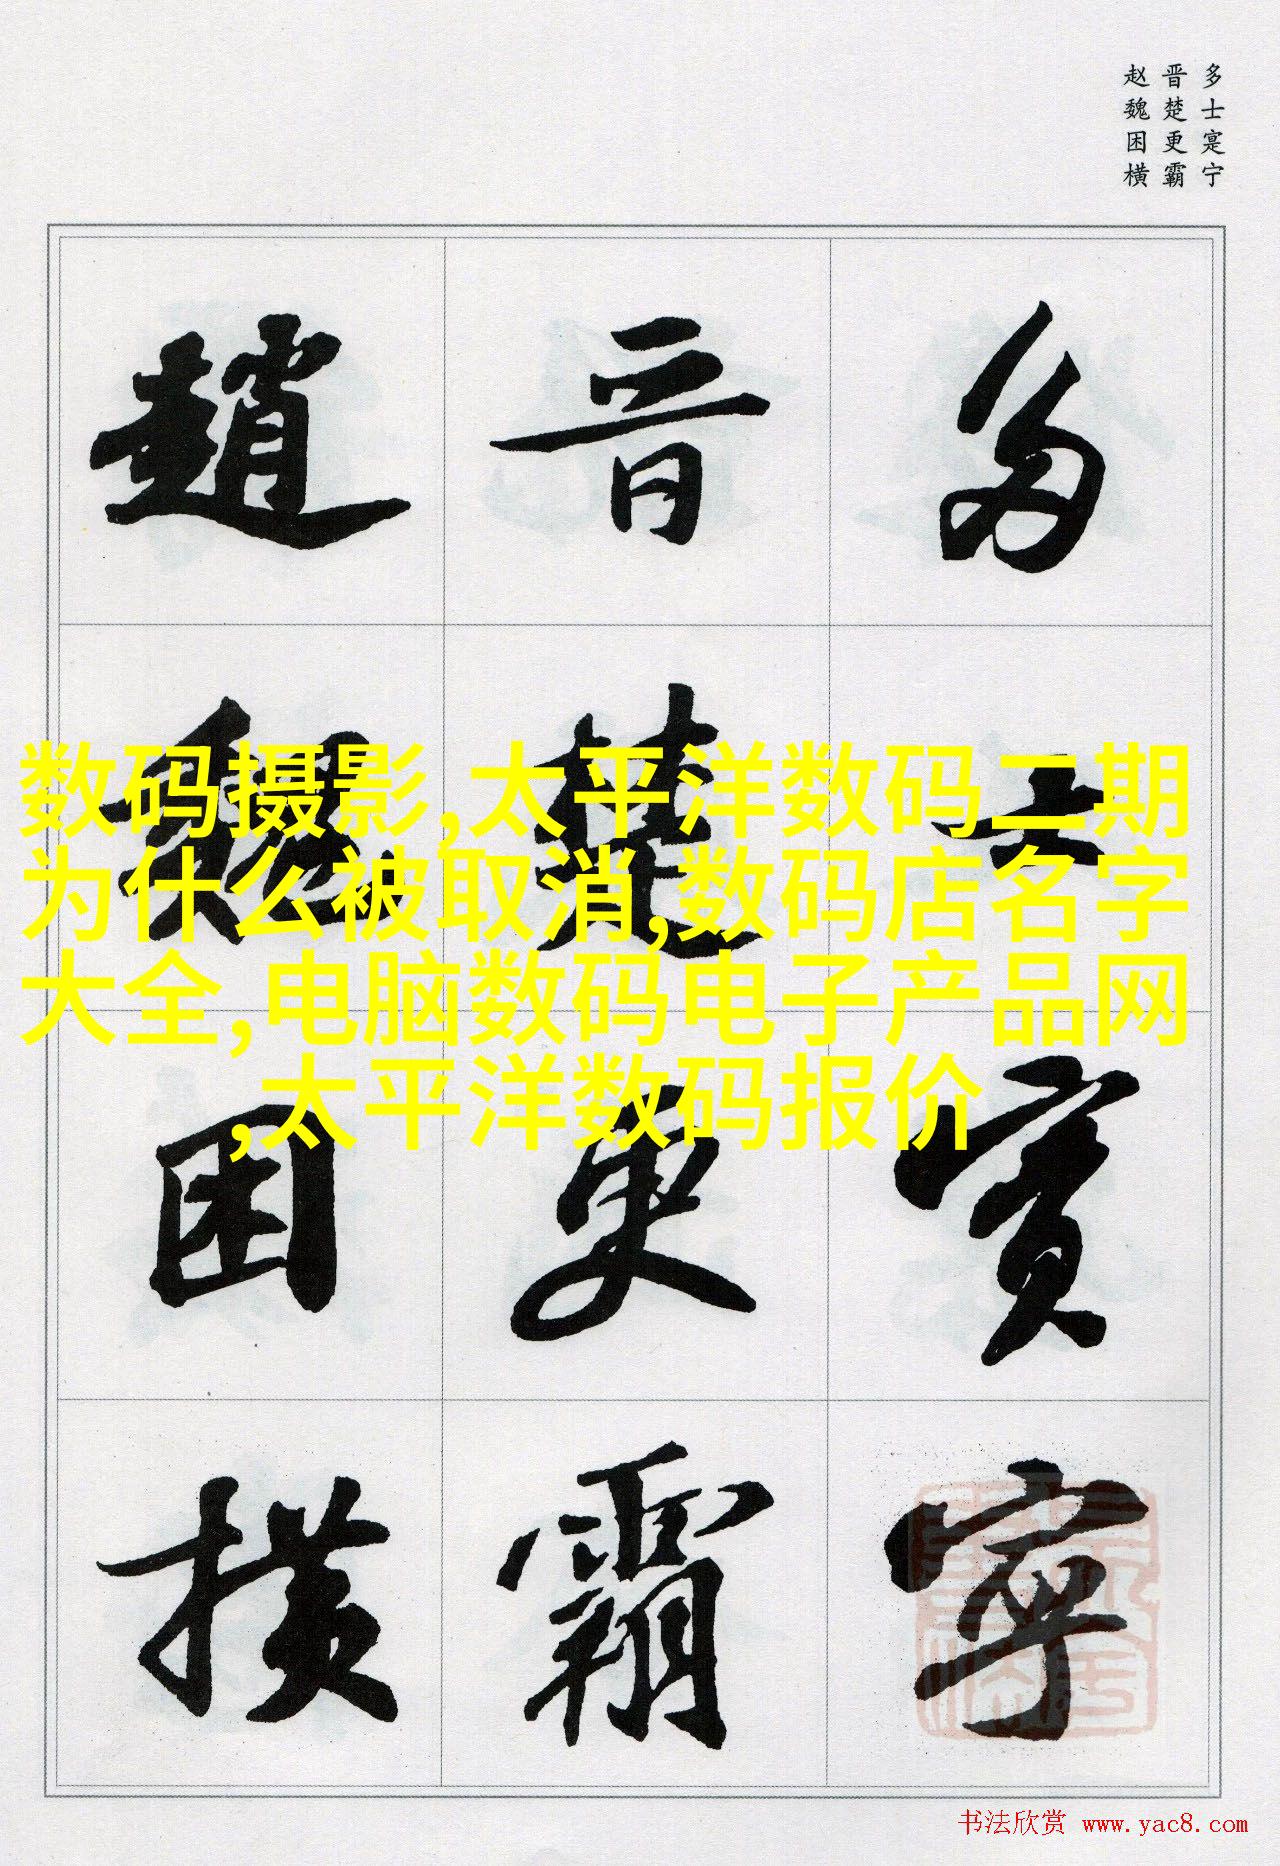 多士寔宁
晋楚更霸
赵魏困横
多士寔寧
晋楚更霸
趙魏困横
数码摄影,太平洋数码二期
为什么被取消,数码店名字
大全,电脑数码电子产品网
,太平洋数码报价
书法欣赏 www.yac8.com